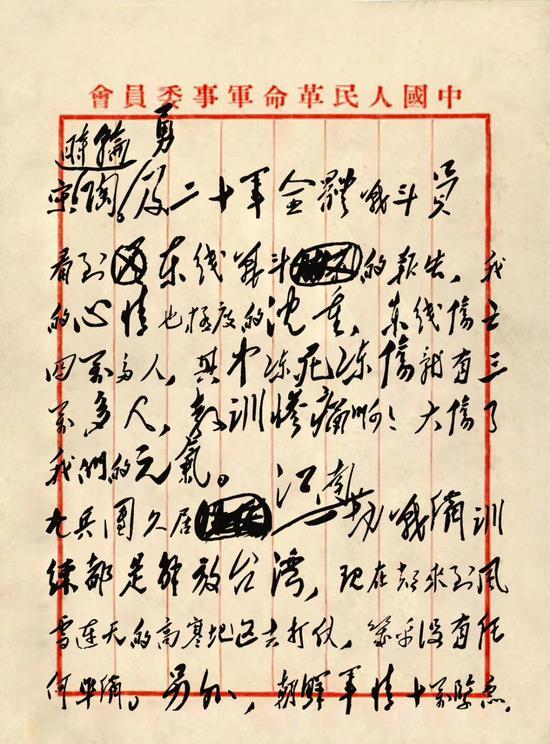 中國人民革命軍事委員會
時輪
勇
京陶。及二十軍全體战斗員
看到东线戰斗的報告,我
的心情也極度的沈重,东线傷亡
四萬多人,其中冻死冻傷就有三
萬多人,教訓惨痛啊!大傷了
我們的元氣。
九兵團久居江南战備訓
練都是解放台湾,現在却來到风
雪连天的高寒地区去打仗,幾乎没有任
何準備。另外,朝鮮軍情十萬險急,